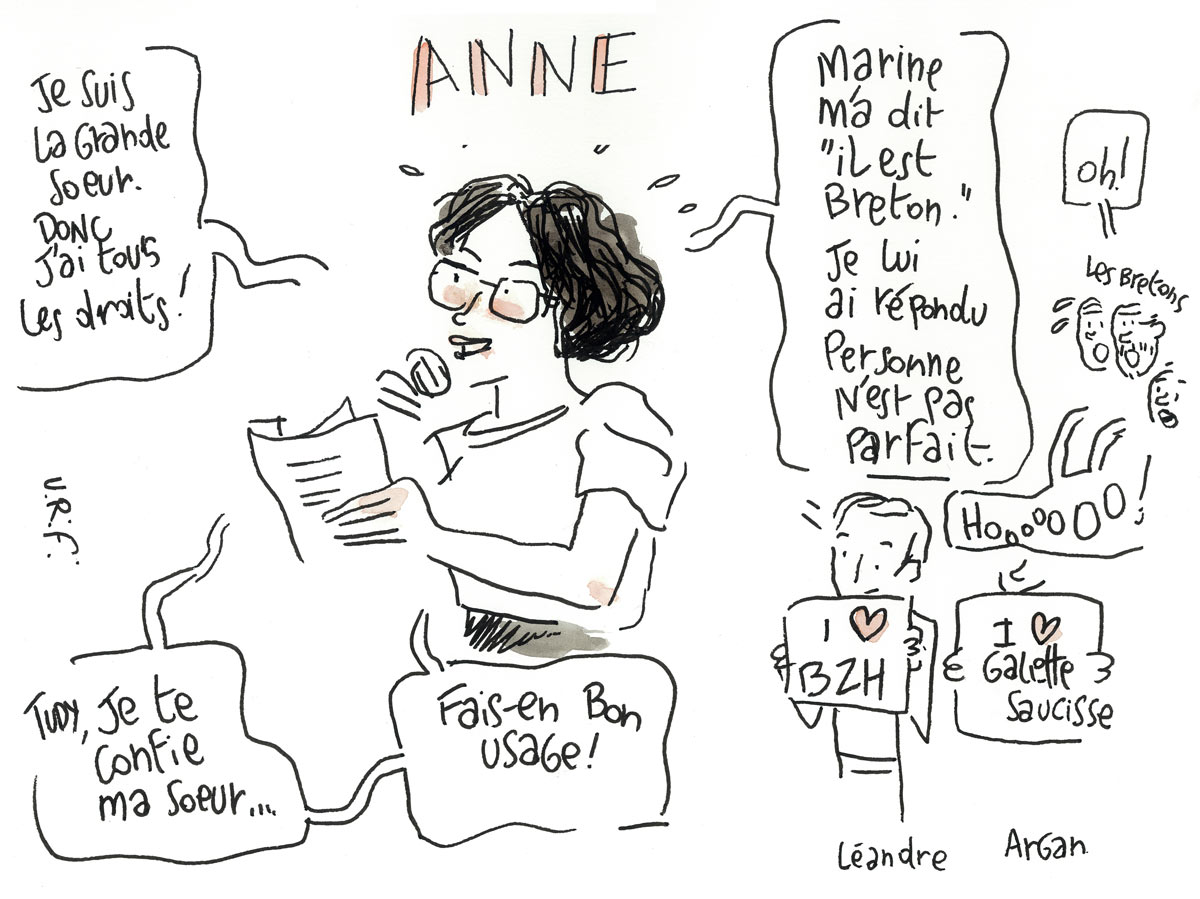 ANNE
Je suis
la Grande
soeur.
DONC
j'ai tous
les droits!
Marine
m'a dit
"il est
Breton."
Je lui
ai répondu
Personne
n'est pas
parfait.
oh!
Les Bretons
HoooooOO!
V.R.i.F.
I ♥
BZH
I ♥
Galette
Saucisse
TUDY, Je te
confie
ma soeur...
Fais-en Bon
usage!
Léandre
Argan